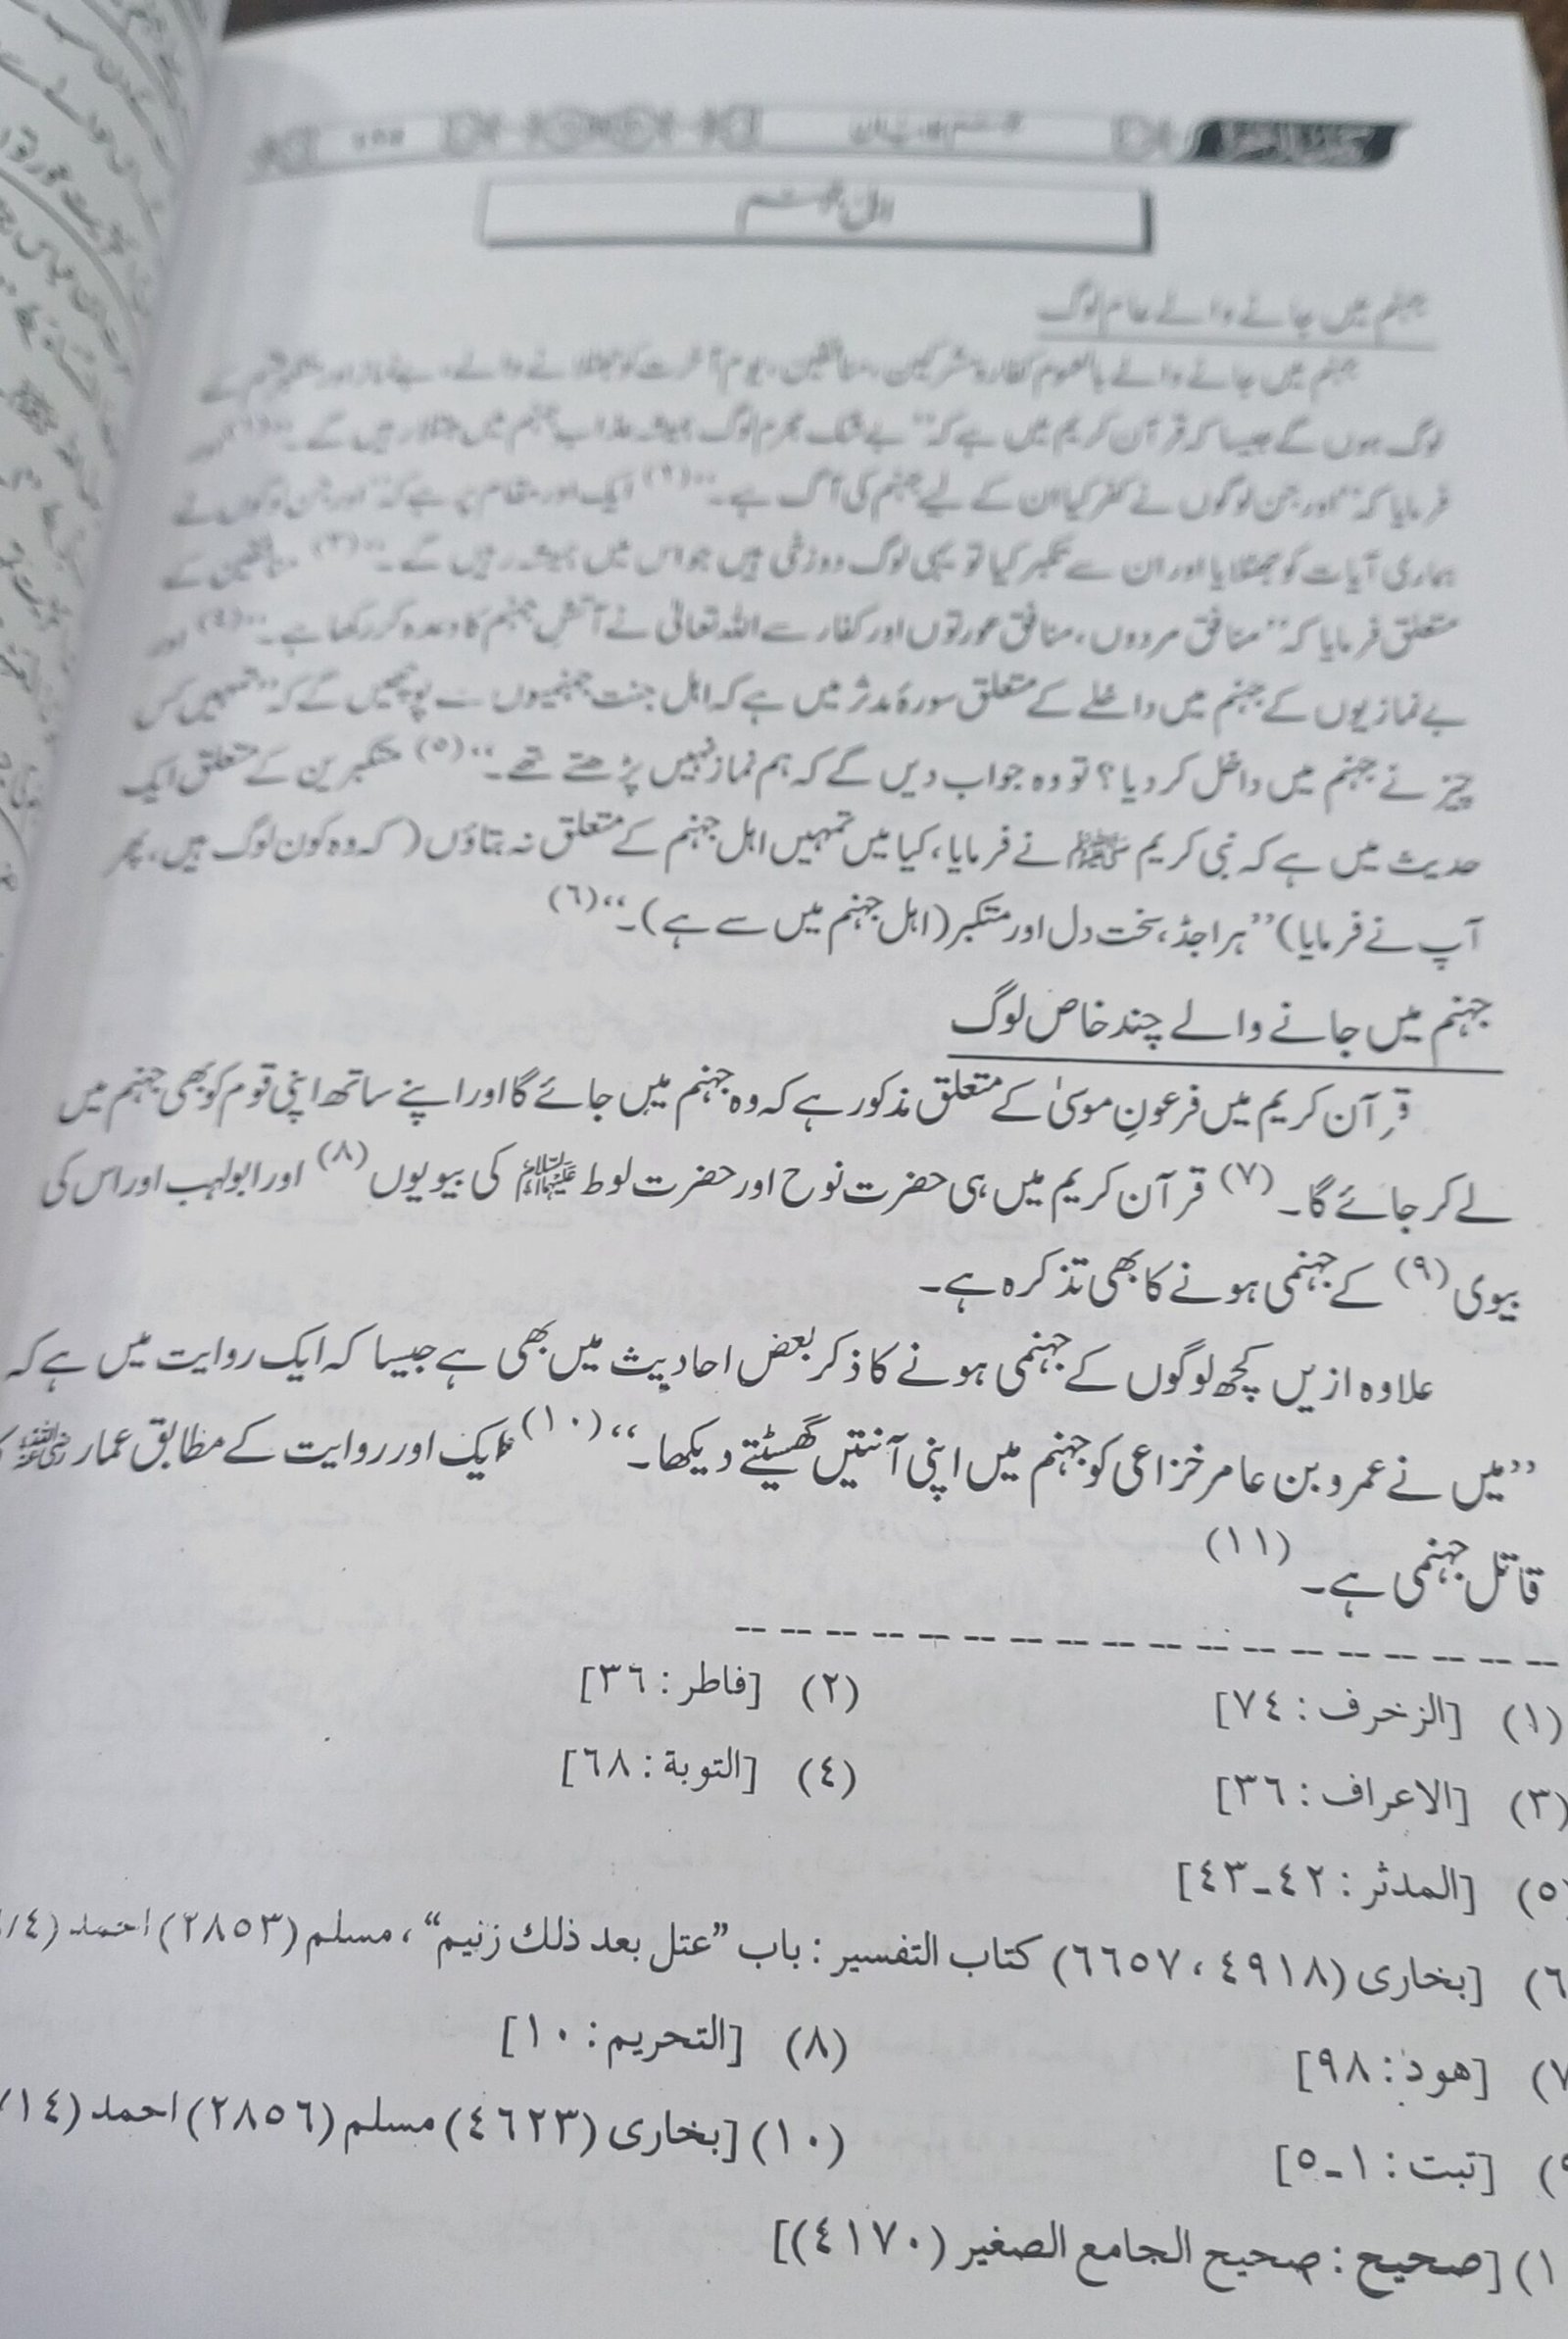 اہل جہنم
جہنم میں جانے والے عام لوگ
جہنم میں جانے والے بالعموم کفار و مشرکین، منافقین، یوم آخرت کو جھٹلانے والے، بے نماز اور متکبر قسم کے
لوگ ہوں گے جیسا کہ قرآن کریم میں ہے کہ ”بے شک مجرم لوگ ہمیشہ عذاب جہنم میں مبتلا رہیں گے۔“(١) اور
فرمایا کہ ”اور جن لوگوں نے کفر کیا ان کے لیے جہنم کی آگ ہے۔“(٢) ایک اور مقام پر ہے کہ ”اور جن لوگوں نے
ہماری آیات کو جھٹلایا اور ان سے تکبر کیا تو یہی لوگ دوزخی ہیں جو اس میں ہمیشہ رہیں گے۔“(٣) منافقین کے
متعلق فرمایا کہ ”منافق مردوں، منافق عورتوں اور کفار سے اللہ تعالیٰ نے آتش جہنم کا وعدہ کر رکھا ہے۔“(٤) اور
بے نمازیوں کے جہنم میں داخلے کے متعلق سورۂ مدثر میں ہے کہ اہل جنت جہنمیوں سے پوچھیں گے کہ ”تمہیں کس
چیز نے جہنم میں داخل کر دیا؟ تو وہ جواب دیں گے کہ ہم نماز نہیں پڑھتے تھے۔“(٥) متکبرین کے متعلق ایک
حدیث میں ہے کہ نبی کریم ﷺ نے فرمایا، کیا میں تمہیں اہل جہنم کے متعلق نہ بتاؤں (کہ وہ کون لوگ ہیں، پھر
آپ نے فرمایا) ”ہر اجڈ، سخت دل اور متکبر (اہل جہنم میں سے ہے)۔“(٦)
جہنم میں جانے والے چند خاص لوگ
قرآن کریم میں فرعونِ موسیٰ کے متعلق مذکور ہے کہ وہ جہنم میں جائے گا اور اپنے ساتھ اپنی قوم کو بھی جہنم میں
لے کر جائے گا۔(٧) قرآن کریم میں ہی حضرت نوح اور حضرت لوط علیہما السلام کی بیویوں(٨) اور ابولہب اور اس کی
بیوی(٩) کے جہنمی ہونے کا بھی تذکرہ ہے۔
علاوہ ازیں کچھ لوگوں کے جہنمی ہونے کا ذکر بعض احادیث میں بھی ہے جیسا کہ ایک روایت میں ہے کہ
”میں نے عمرو بن عامر خزاعی کو جہنم میں اپنی آنتیں گھسیٹتے دیکھا۔“(١٠) ایک اور روایت کے مطابق عمار رضی اللہ عنہ
قاتل جہنمی ہے۔(١١)
(١) [الزخرف: ٧٤] (٢) [فاطر: ٣٦]
(٣) [الاعراف: ٣٦] (٤) [التوبة: ٦٨]
(٥ [المدثر: ٤٢-٤٣]
(٦ [بخاری (٤٩١٨، ٦٦٥٧) کتاب التفسیر: باب ”عتل بعد ذلك زنيم“، مسلم (٢٨٥٣) احمد (٤/
(٧ [هود: ٩٨] (٨) [التحريم: ١٠]
(٩ [تبت: ١-٥] (١٠) [بخاری (٤٦٢٣) مسلم (٢٨٥٦) احمد (١٤/
١) [صحيح: صحيح الجامع الصغير (٤١٧٠)]